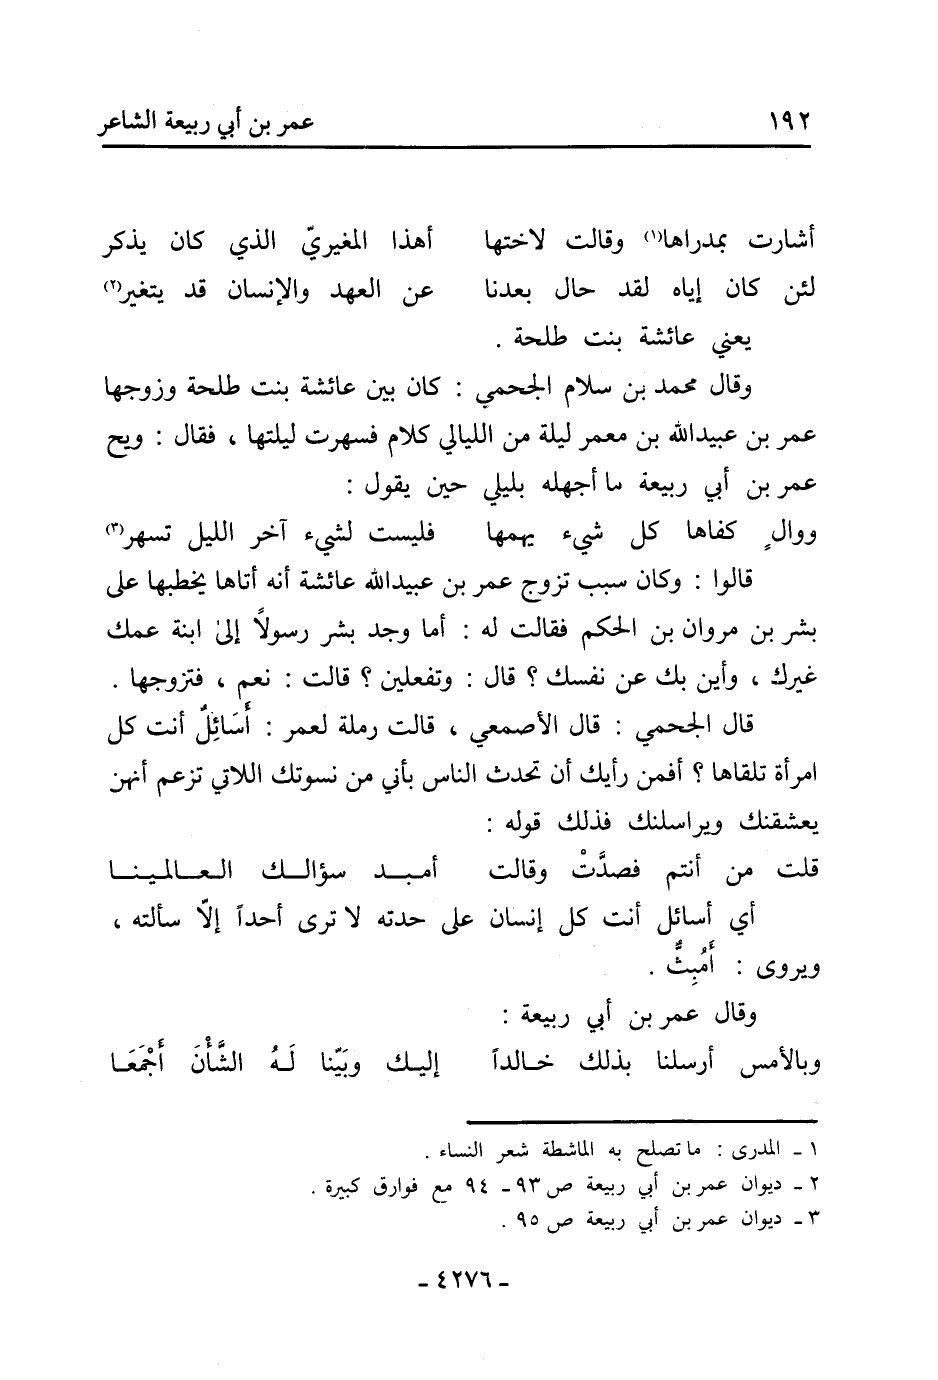 ١٩٢ عمر بن أبي ربيعة الشاعر
أشارت بمدراها(١) وقالت لاختها أهذا المغيريّ الذي كان يذكر
لئن كان إياه لقد حال بعدنا عن العهد والإنسان قد يتغير(٢)
يعني عائشة بنت طلحة .
وقال محمد بن سلام الجحمي : كان بين عائشة بنت طلحة وزوجها
عمر بن عبيدالله بن معمر ليلة من الليالي كلام فسهرت ليلتها ، فقال : ويح
عمر بن أبي ربيعة ما أجهله بليلي حين يقول :
ووالٍ كفاها كل شيء يهمها فليست لشيء آخر الليل تسهر(٣)
قالوا : وكان سبب تزوج عمر بن عبيدالله عائشة أنه أتاها يخطبها على
بشر بن مروان بن الحكم فقالت له : أما وجد بشر رسولاً إلىٰ ابنة عمك
غيرك ، وأين بك عن نفسك ؟ قال : وتفعلين ؟ قالت : نعم ، فتزوجها .
قال الجحمي : قال الأصمعي ، قالت رملة لعمر : أَسَائِلٌ أنت كل
امرأة تلقاها ؟ أفمن رأيك أن تحدث الناس بأني من نسوتك اللاتي تزعم أنهن
يعشقنك ويراسلنك فذلك قوله :
قلت من أنتم فصدَّتْ وقالت أمبد سؤالك العالمينا
أي أسائل أنت كل إنسان على حدته لا ترى أحداً إلاّ سألته ،
ويروى : أَمُبِثٌّ .
وقال عمر بن أبي ربيعة :
وبالأمس أرسلنا بذلك خالداً إليك وبَيّنا لَهُ الشَّأْنَ أَجْمَعَا
١ ـ المدرى : ما تصلح به الماشطة شعر النساء .
٢ ـ ديوان عمر بن أبي ربيعة ص ٩٣ ـ ٩٤ مع فوارق كبيرة .
٣ ـ ديوان عمر بن أبي ربيعة ص ٩٥ .
ـ ٤٢٧٦ ـ